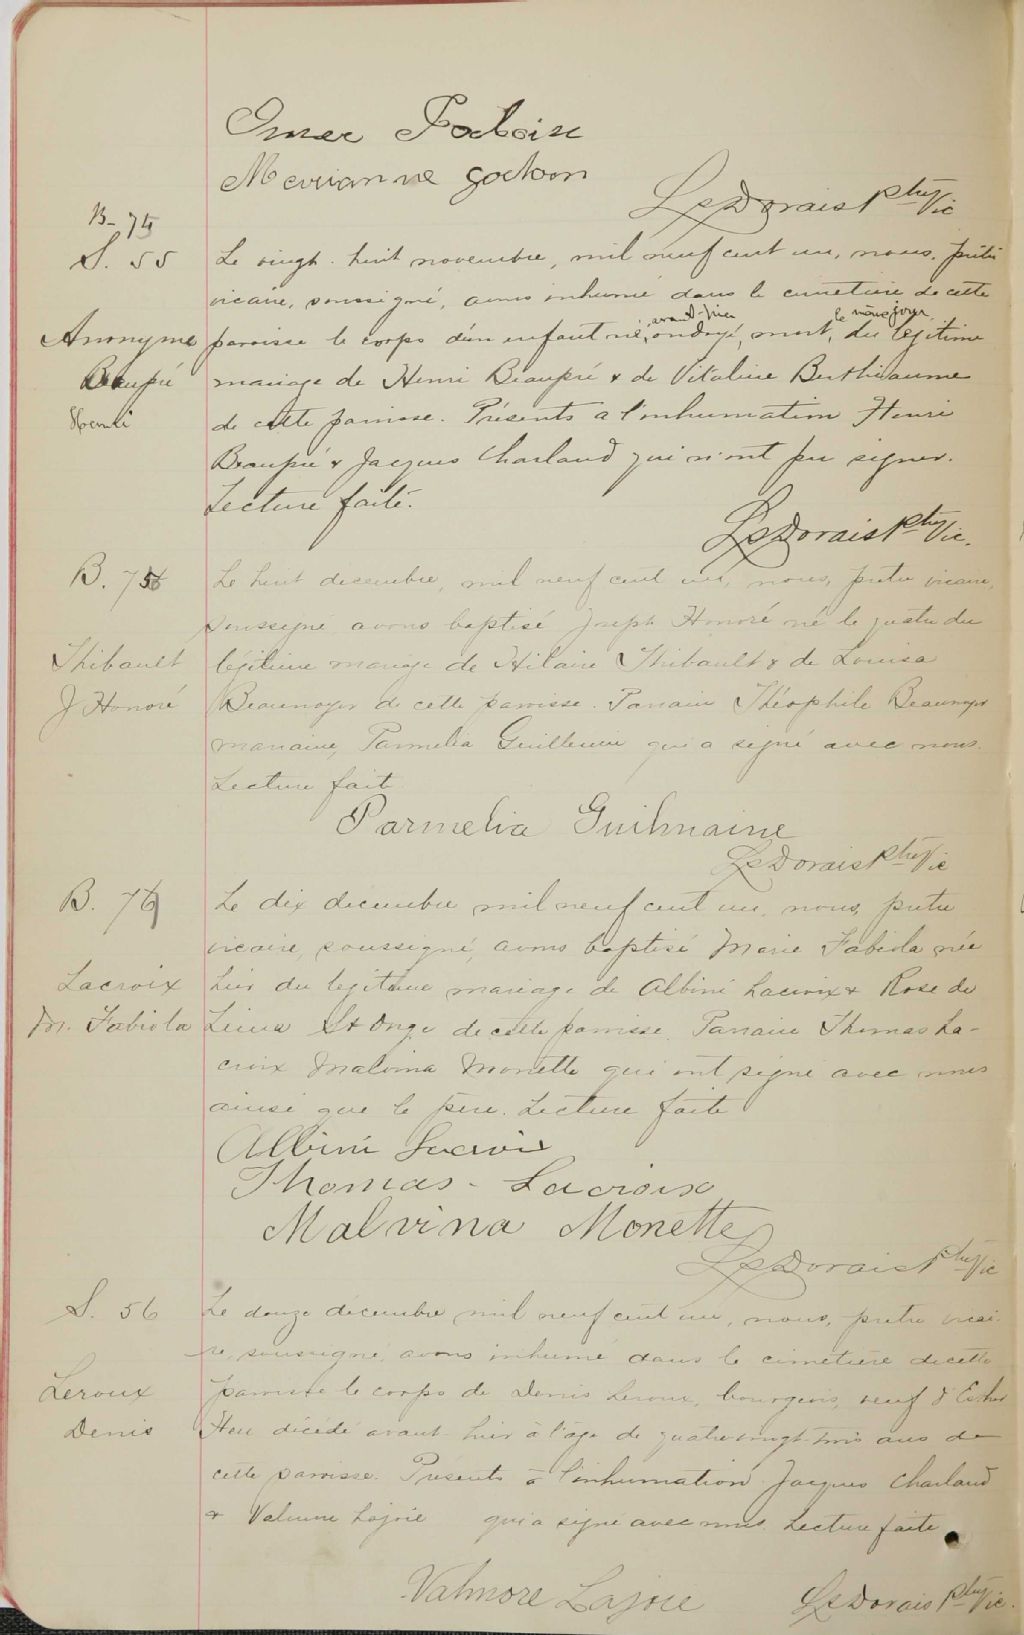 Omer
Marianne
LsDorais Ptre Vic
B- 75
S. 55
Anonyme
Beaupré
Henri
Le vingt-huit novembre, mil neuf cent un, nous, prêtre
vicaire, soussigné, avons inhumé dans le cimetière de cette
paroisse le corps d'un enfant né, avant-hier ondoyé, mort, le même jour, du légitime
mariage de Henri Beaupré & de Vitaline Berthiaume
de cette paroisse. Présents à l'inhumation Henri
Beaupré & Jacques Charland qui n'ont pu signer.
Lecture faite.
LsDorais Ptre Vic.
B. 76
Thibault
J Honoré
Le huit decembre, mil neuf cent un, nous, prêtre vicaire,
soussigné avons baptisé Joseph Honoré né le quatre du
légitime mariage de Hilaire Thibault & de Louisa
Beaunoyer de cette paroisse. Parrain Théophile Beaunoyer
marraine, Parmelia Guillemin qui a signé avec nous.
Lecture fait
Parmelia Guilmaine
LsDorais Ptre Vic
B. 77
Lacroix
M. Fabiola
Le dix decembre mil neuf cent un, nous, prêtre
vicaire, soussigné, avons baptisé Marie Fabiola née
hier du légitime mariage de Albini Lacroix & Rose de
Lima St Onge de cette paroisse. Parrain Thomas La-
croix Malvina Monette qui ont signé avec nous
ainsi que le père. Lecture faite
Albini Lacroix
Thomas - Lacroix
Malvina Monette
LsDorais Ptre Vic
S. 56
Leroux
Denis
Le douze décembre mil neuf cent un, nous, prêtre vicai-
re, soussigné, avons inhumé dans le cimetière de cette
paroisse le corps de Denis Leroux, bourgeois, veuf d'Esther
décédé avant-hier à l'âge de quatre-vingt-trois ans de
cette paroisse. Présents à l'inhumation Jacques Charland
& Valmore Lajoie qui a signé avec nous. Lecture faite
Valmore Lajoie
LsDorais Ptre Vic.